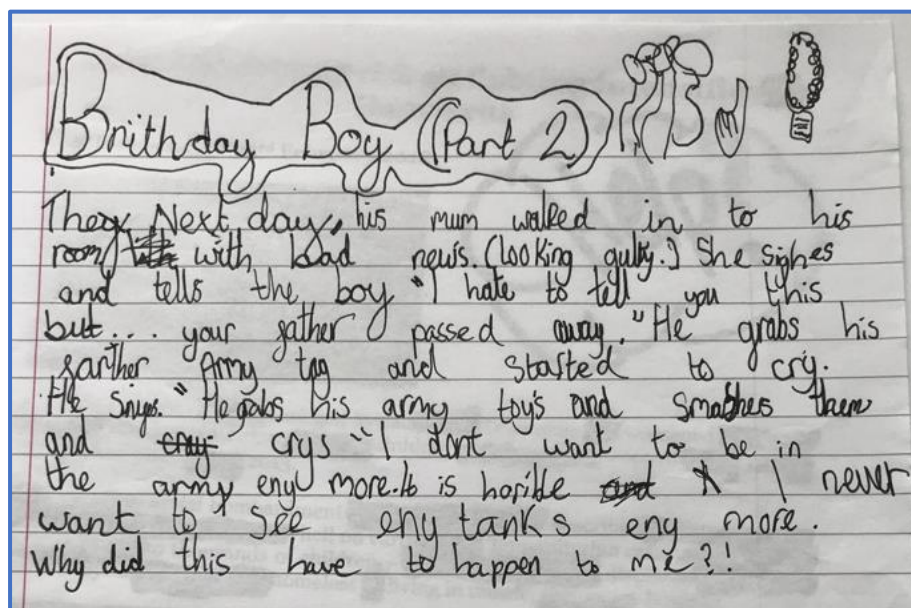 Brithday Boy (Part 2)
They Next day, his mum walked in to his
room with bad news. (looking gulty.) She sighes
and tells the boy "I hate to tell you this
but.... your father passed away." He grabs his
farther Army tag and started to cry.
He "He grabs his army toy's and smashes them
and crys "I dont want to be in
the army eny more. is horible I never
want to see eny tanks eny more.
Why did this have to happen to me?!